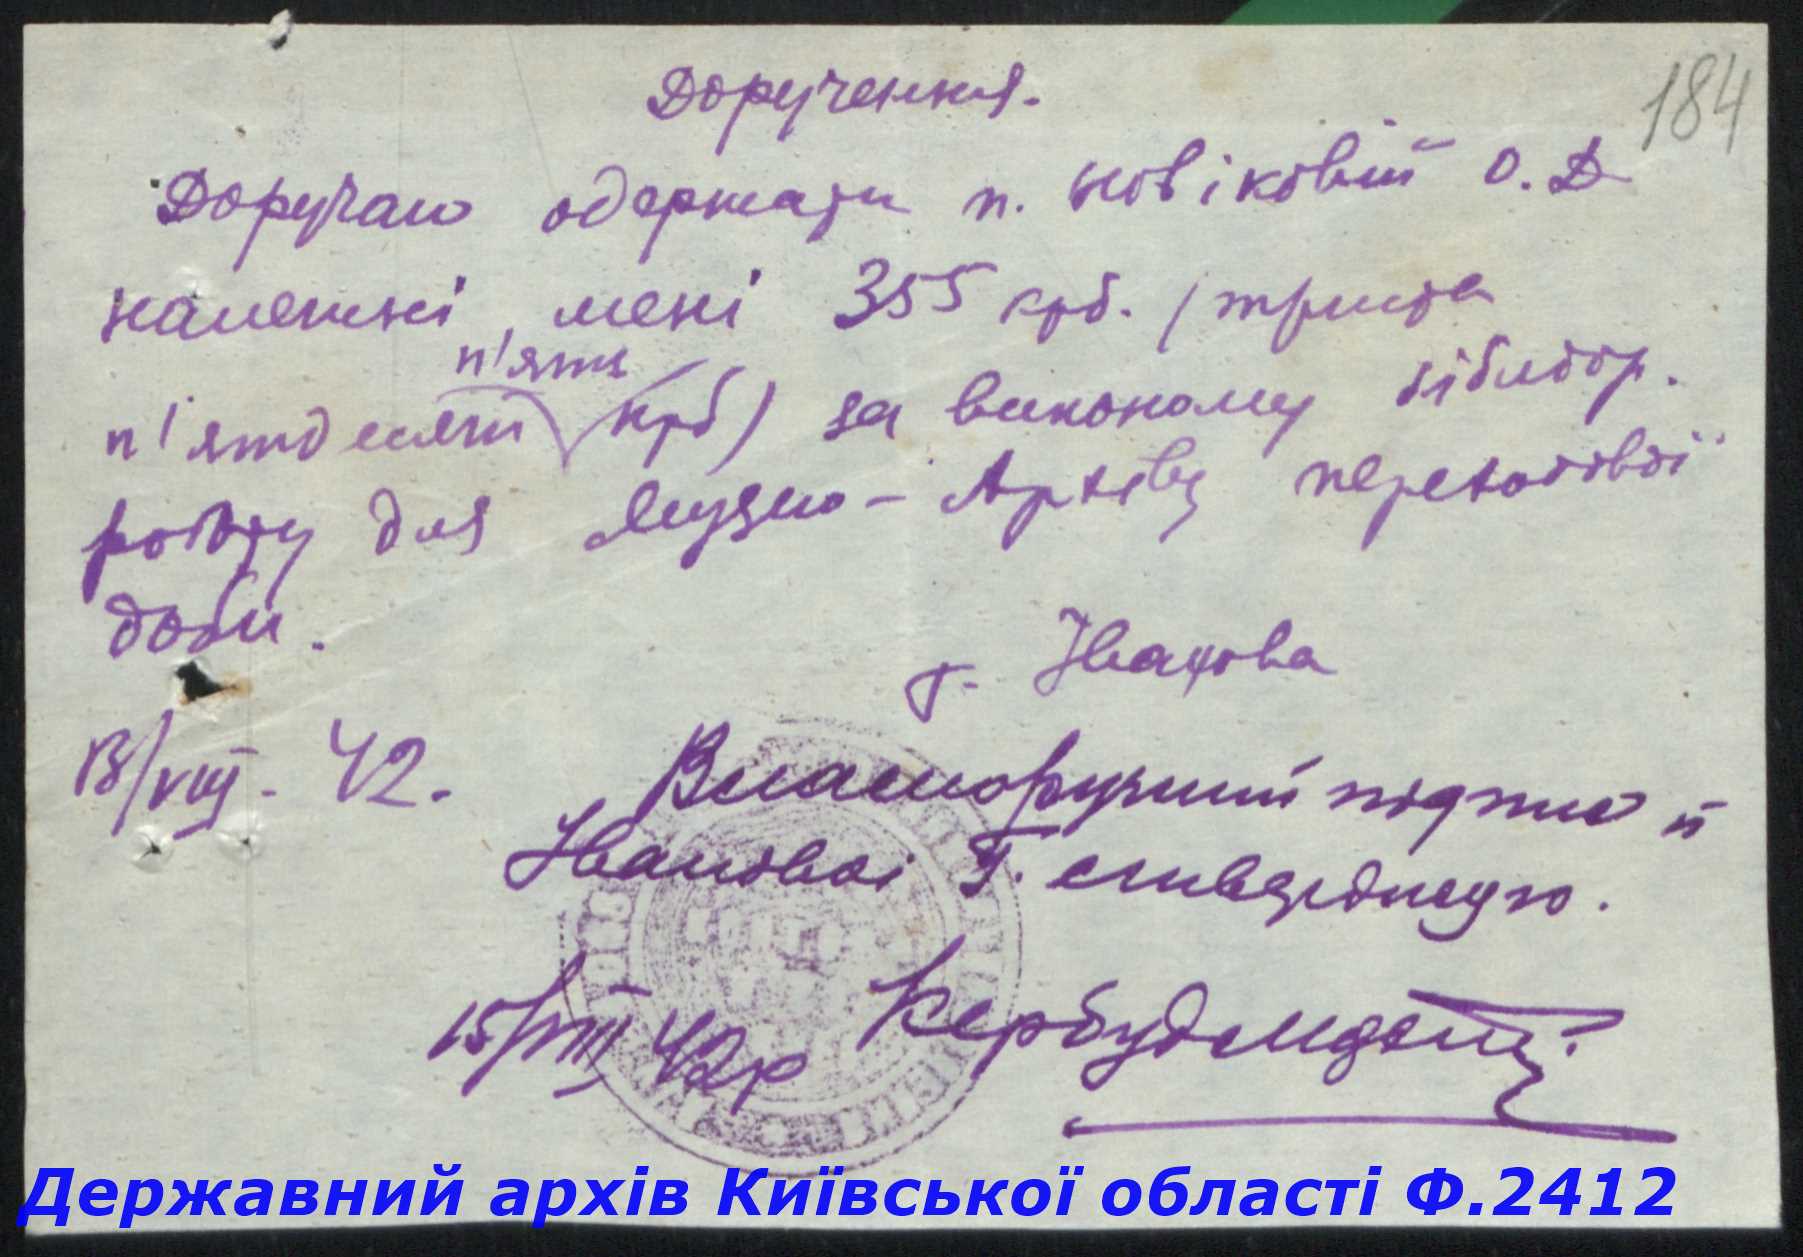 Доручення.
184
Доручаю одержати п. Новіковій О. Д
належні мені 355 крб. (триста
п'ять
п'ятдесят крб) за виконану бібліогр.
роботу для Музею-Архіву переходової
доби.
Г. Іванова
13/VIII. 42.
Власноручний підпис п
Іванової Г. стверджую.
15/VIII 42р
Державний архів Київської області Ф.2412